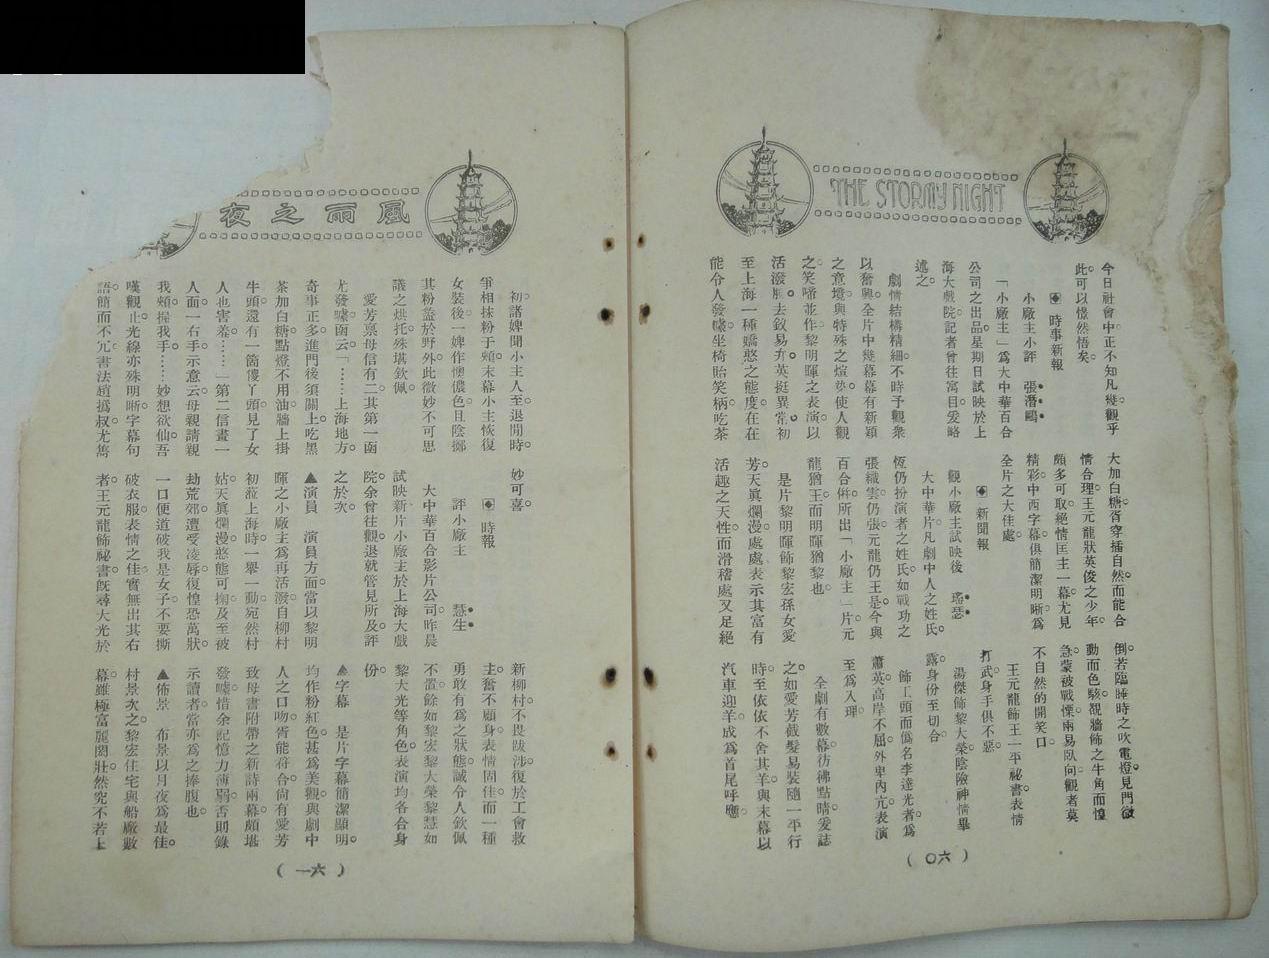 THE STORMY NIGHT
今日社會中正不知凡幾觀乎
此可以憬然悟矣。
時事新報
小廠主小評　張潛鷗
「小廠主」爲大中華百合
公司之出品星期日試映於上
海大戲院記者曾往寓目爰略
述之。
劇情結構精細不時予觀衆
以奮興。全片中幾幕幕有新穎
之意境與特殊之煊塾使人觀
之笑啼並作黎明暉之表演以
活潑勝。去敘易弁英挺異常。初
至上海一種嬌憨之態度在在
能令人發噱。坐椅貽笑柄吃茶
大加白糖胥穿插自然而能合
情合理。王元龍狀英俊之少年
頗多可取絕情匡主一幕尤見
精彩中西字幕俱簡潔明晰爲
全片之大佳處
新聞報
觀小廠主試映後　瑤瑟
大中華片凡劇中人之姓氏
恆仍扮演者之姓氏。如戰功之
張織雲仍張元龍仍王是今與
百合倂所出「小廠主」片元
龍猶王而明暉猶黎也
是片黎明暉飾黎宏孫女愛
芳天眞爛漫處處表示其富有
活趣之天性而滑稽處又足絕
倒。若臨睡時之吹電燈見門徽
動而色駭覩牆飾之牛角而惶
急。蒙被戰慄兩易臥向觀者莫
不自然的開笑口
王元龍飾王一平祕書表情
打武身手俱不惡
湯傑飾黎大榮陰險神情畢
露。身份至切合
飾工頭而僞名李達光者爲
蕭英高岸不屈外卑內亢表演
至爲入理
全劇有數幕彷彿點晴爰誌
之如愛芳截髮易裝隨一平行
時至依依不舍其羊與末幕以
汽車迎羊成爲首尾呼應
（六〇）
風雨之夜
初諸婢聞小主人至退閒時
爭相抹粉于頰末幕小主恢復
女裝後一婢作懊儂色且陰擲
其粉盝於野外此微妙不可思
議之烘托殊堪欽佩
愛芳稟母信有二其第一函
尤發噱函云「……上海地方
奇事正多進門後須關上吃黑
茶加白糖點燈不用油牆上掛
牛頭還有一箇儍丫頭見了女
人也害羞……」第二信畫一
人面一右手示意云母親請親
我頰握我手……妙想欲仙吾
嘆觀止光線亦殊明晰字幕句
語簡而不冗書法趙撝叔尤雋
妙可喜。
時報
評小廠主　慧生
大中華百合影片公司昨晨
試映新片小廠主於上海大戲
院。余曾往觀退就管見所及評
之於次
▲演員　演員方面當以黎明
暉之小廠主爲再活潑自柳村
初蒞上海時一舉一動宛然村
姑天眞爛漫憨態可掬及至被
劫荒郊遭受凌辱復惶恐萬狀
一口便道破我是女子不要撕
破衣服表情之佳實無出其右
者王元龍飾祕書旣尋大光於
新柳村不畏跋涉復於工會救
主奮不顧身表情固佳而一種
勇敢有爲之狀態誠令人欽佩
不置餘如黎宏黎大榮黎慧如
黎大光等角色表演均各合身
份。
▲字幕　是片字幕簡潔顯明。
均作粉紅色甚爲美觀與劇中
人之口吻胥能符合尙有愛芳
致母書附帶之新詩兩幕頗堪
發噱惜余記憶力薄弱否則錄
示讀者當亦爲之捧腹也
▲佈景　布景以月夜爲最佳。
村景次之黎宏住宅與船廠數
幕雖極富麗閎壯然究不若上
（六一）